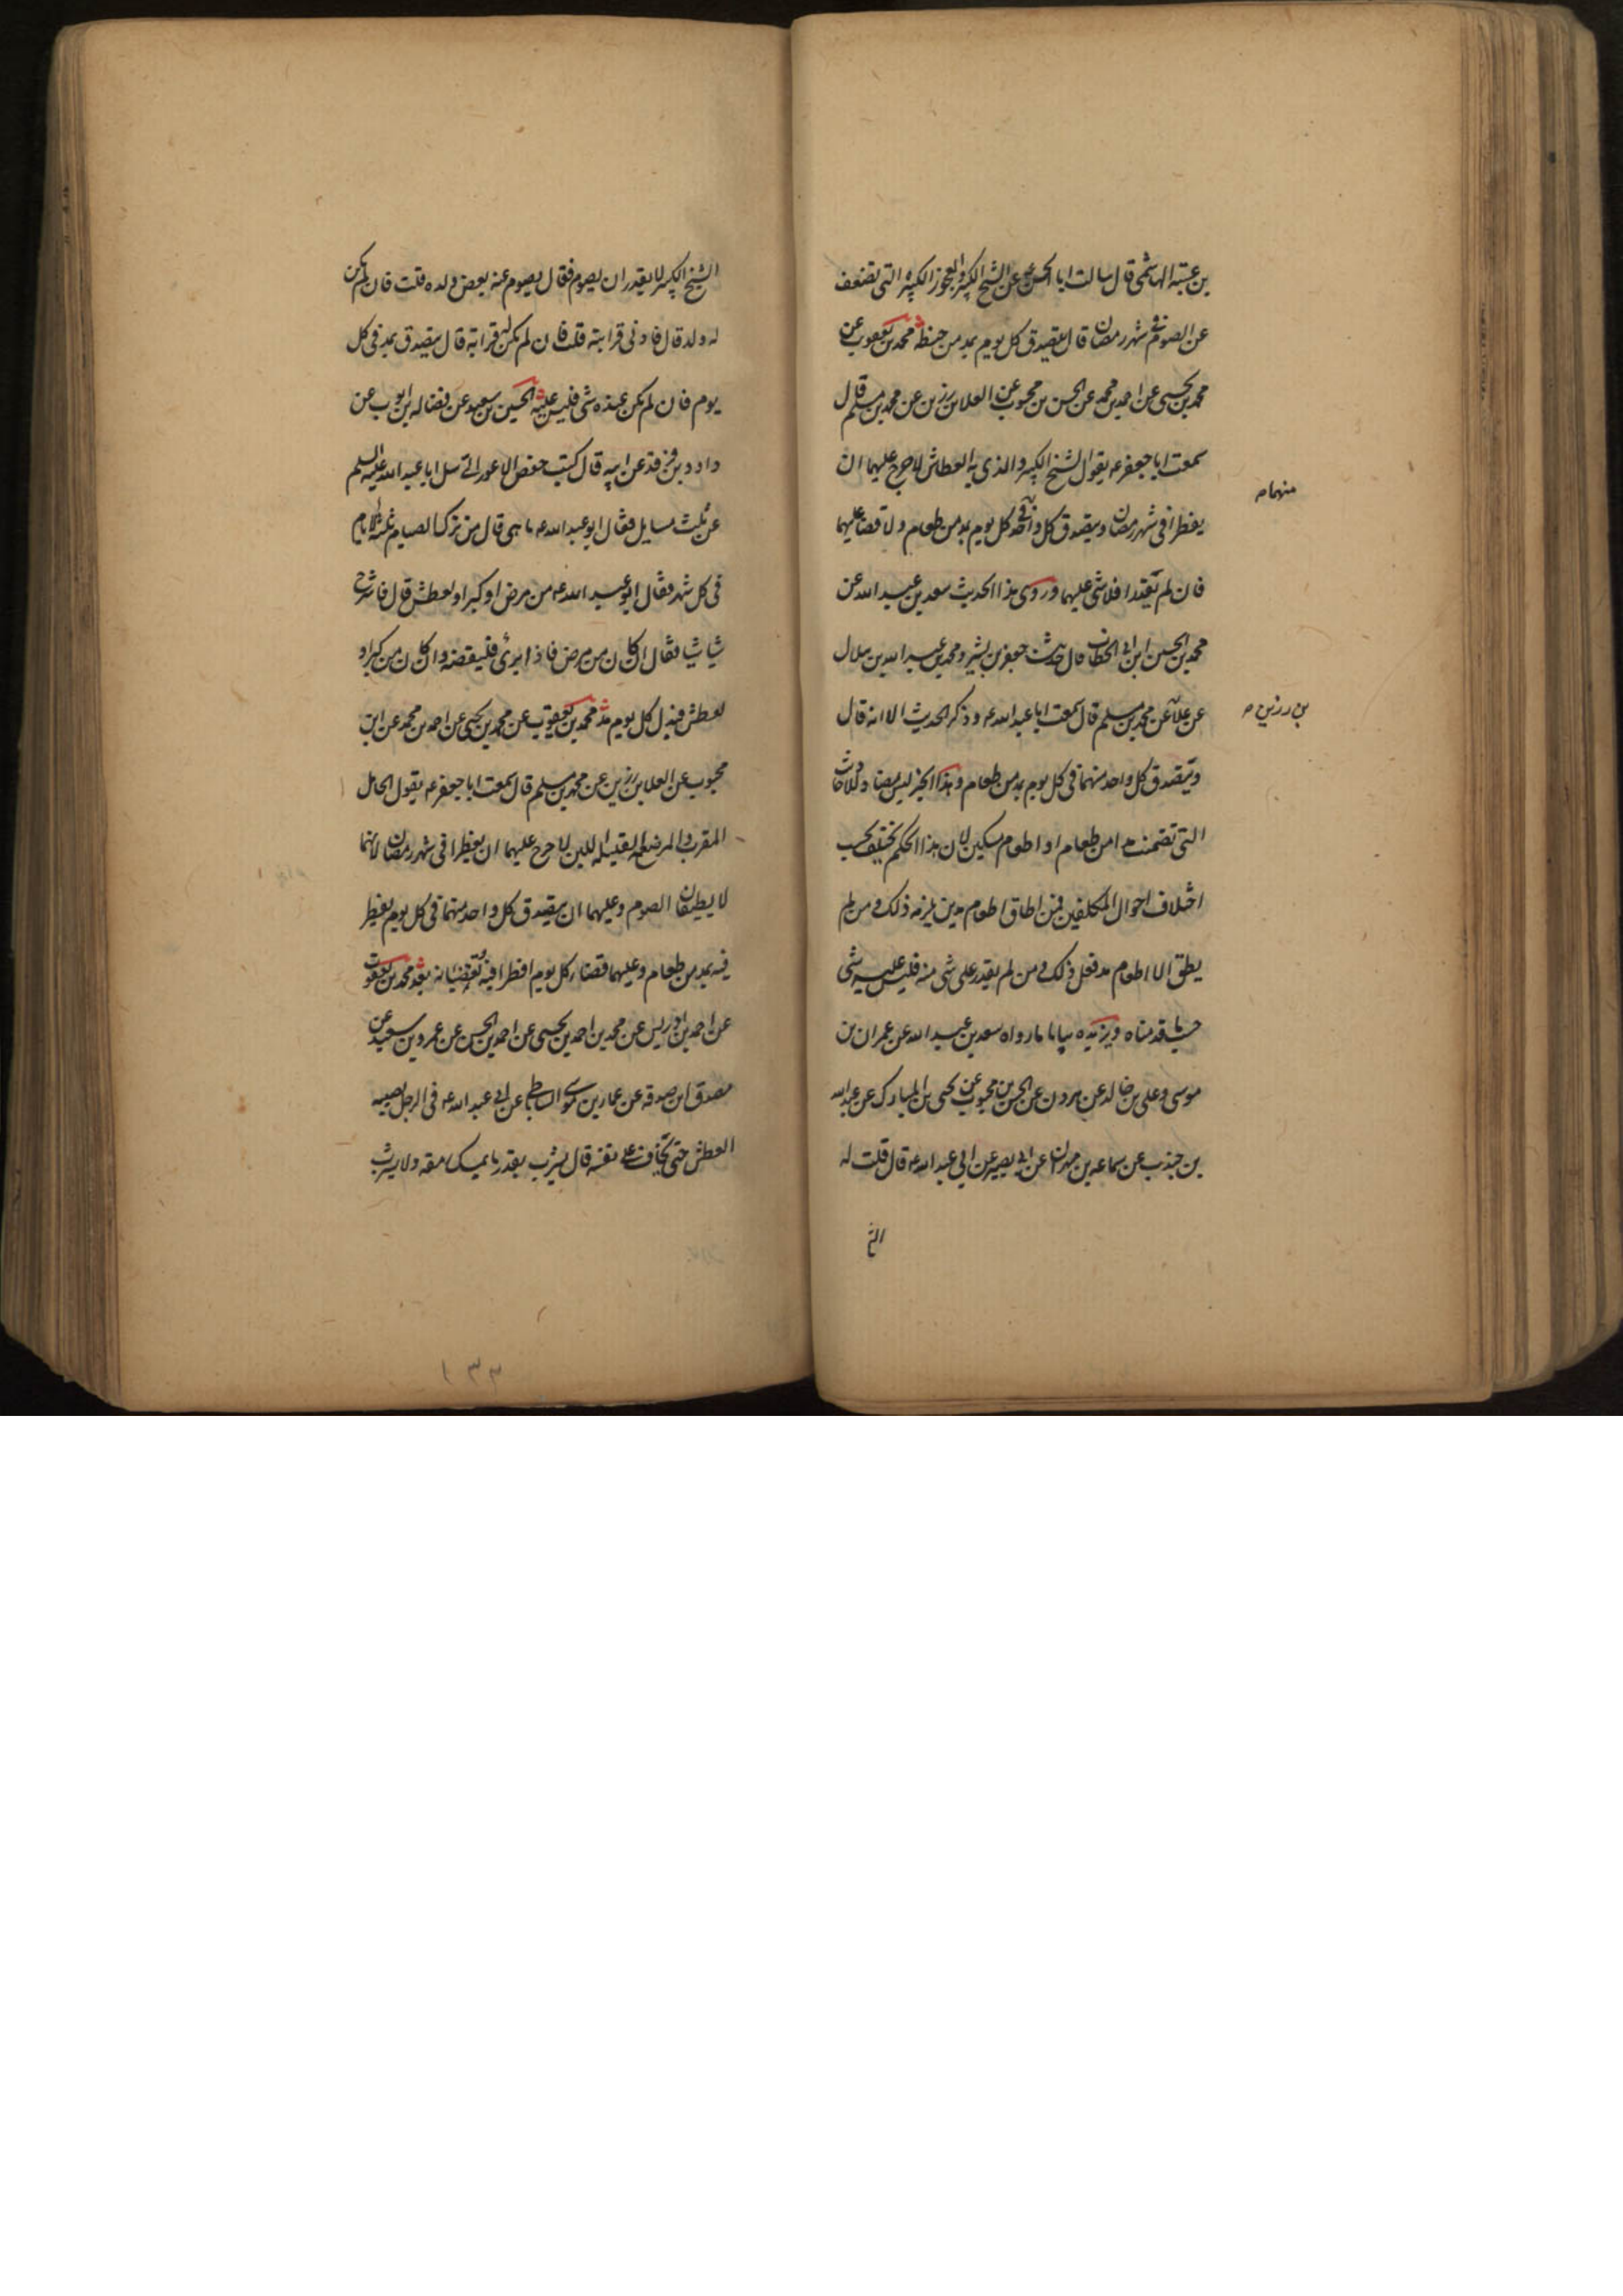 بن عتبة الهاشمي قال سالت ابا الحسن ع عن الشيخ الكبير والعجوز الكبيرة التي تضعف
عن الصوم في شهر رمضان قال يتصدق كل يوم بمد من حنطة محمد بن يعقوب عن
محمد بن يحيى عن احمد بن محمد عن الحسن بن محبوب عن العلا بن رزين عن محمد بن مسلم قال
سمعت ابا جعفر ع يقول الشيخ الكبير والذي به العطاش لا حرج عليهما ان
يفطرا في شهر رمضان ويتصدق كل واحد في كل يوم بمد من طعام ولا قضا عليهما
منهما
فان لم يقدرا فلا شي عليهما وروى هذا الحديث سعد بن عبد الله عن
محمد بن الحسين ابن ابي الخطاب قال حدثنا جعفر بن بشير ومحمد بن عبد الله بن هلال
عن علا عن محمد بن مسلم قال سمعت ابا عبد الله ع وذكر الحديث الا انه قال
بن رزين
ويتصدق كل واحد منهما في كل يوم بمدين من طعام وهذا الخبر ليس بمضاد للاحاديث
التي تضمنت مدا من طعام او اطعام مسكين لان هذا الحكم يختلف بحسب
اختلاف احوال المكلفين فمن اطاق اطعام مدين يلزمه ذلك ومن لم
يطق الا اطعام مد فعل ذلك ومن لم يقدر على شي منه فليس عليه شي
حسبما قدمناه ويزيده بيانا ما رواه سعد بن عبد الله عن عمران بن
موسى وعلي بن خالد عن هرون عن الحسن بن محبوب عن يحيى بن المبارك عن عبد الله
بن جندب عن سماعه بن مهران عن ابي بصير عن ابي عبد الله ع قال قلت له
الشيخ
الشيخ الكبير لا يقدر ان يصوم فقال يصوم عنه بعض ولده قلت فان لم يكن
له ولد قال فادنى قرابته قلت فان لم يكن له قرابة قال يتصدق بمد في كل
يوم فان لم يكن عنده شي فليس عليه الحسين بن سعيد عن فضاله بن ايوب عن
داود بن فرقد عن ابيه قال كتب حفص الاعور الي سل ابا عبد الله عليه السلم
عن ثلث مسايل فقال ابو عبد الله ع ما هي قال من ترك الصيام ثلثة ايام
في كل شهر فقال ابو عبد الله ع من مرض او كبر او لعطش قال فاشرح
شيا شيا فقال ان كان من مرض فاذا برئ فليقضه وان كان من كبر او
لعطش فبدل كل يوم مد محمد بن يعقوب عن محمد بن يحيى عن احمد بن محمد عن ابن
محبوب عن العلا بن رزين عن محمد بن مسلم قال سمعت ابا جعفر ع يقول الحامل
المقرب والمرضعة القليلة اللبن لا حرج عليهما ان يفطرا في شهر رمضان لانهما
لا يطيقان الصوم وعليهما ان يتصدق كل واحد منهما في كل يوم يفطر
فيه بمد من طعام وعليهما قضاء كل يوم افطرا فيه تقضيانه بعد محمد بن يعقوب
عن احمد بن ادريس عن محمد بن احمد بن يحيى عن احمد بن الحسن عن عمرو بن سعيد عن
مصدق ابن صدقه عن عمار بن موسى الساباطي عن ابي عبد الله ع في الرجل يصيبه
العطش حتى يخاف على نفسه قال يشرب بقدر ما يمسك رمقه ولا يشرب
١٣٣